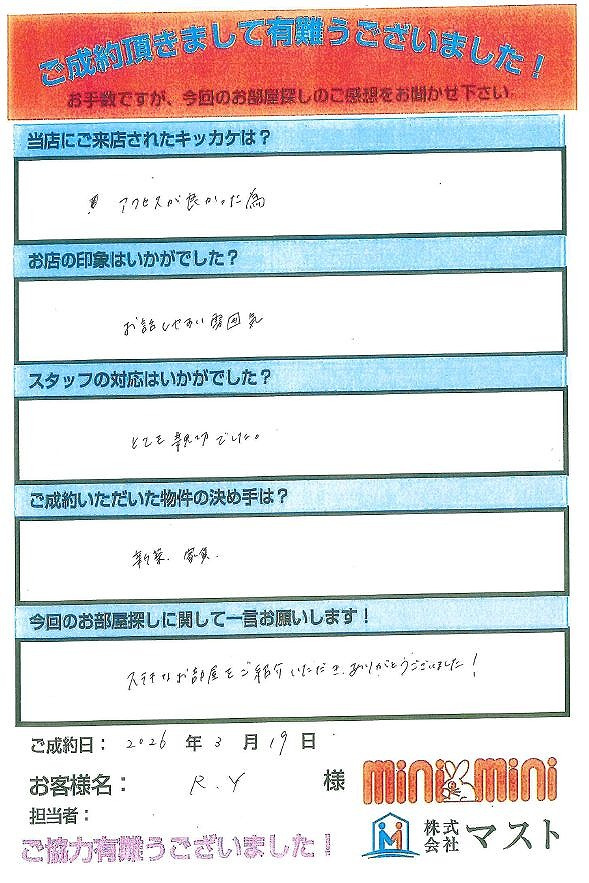 ご成約頂きまして有難うございました!
お手数ですが、今回のお部屋探しのご感想をお聞かせ下さい
当店にご来店されたキッカケは?
アクセスが良かった為
お店の印象はいかがでした?
お話しやすい雰囲気
スタッフの対応はいかがでした?
とても親切でした。
ご成約いただいた物件の決め手は?
新築、家賃、
今回のお部屋探しに関して一言お願いします!
ステキなお部屋をご紹介いただき、ありがとうございました!
ご成約日: 2026 年 3 月 19 日
お客様名: R.Y 様
minimini
担当者:
株式会社 マスト
ご協力有難うございました!